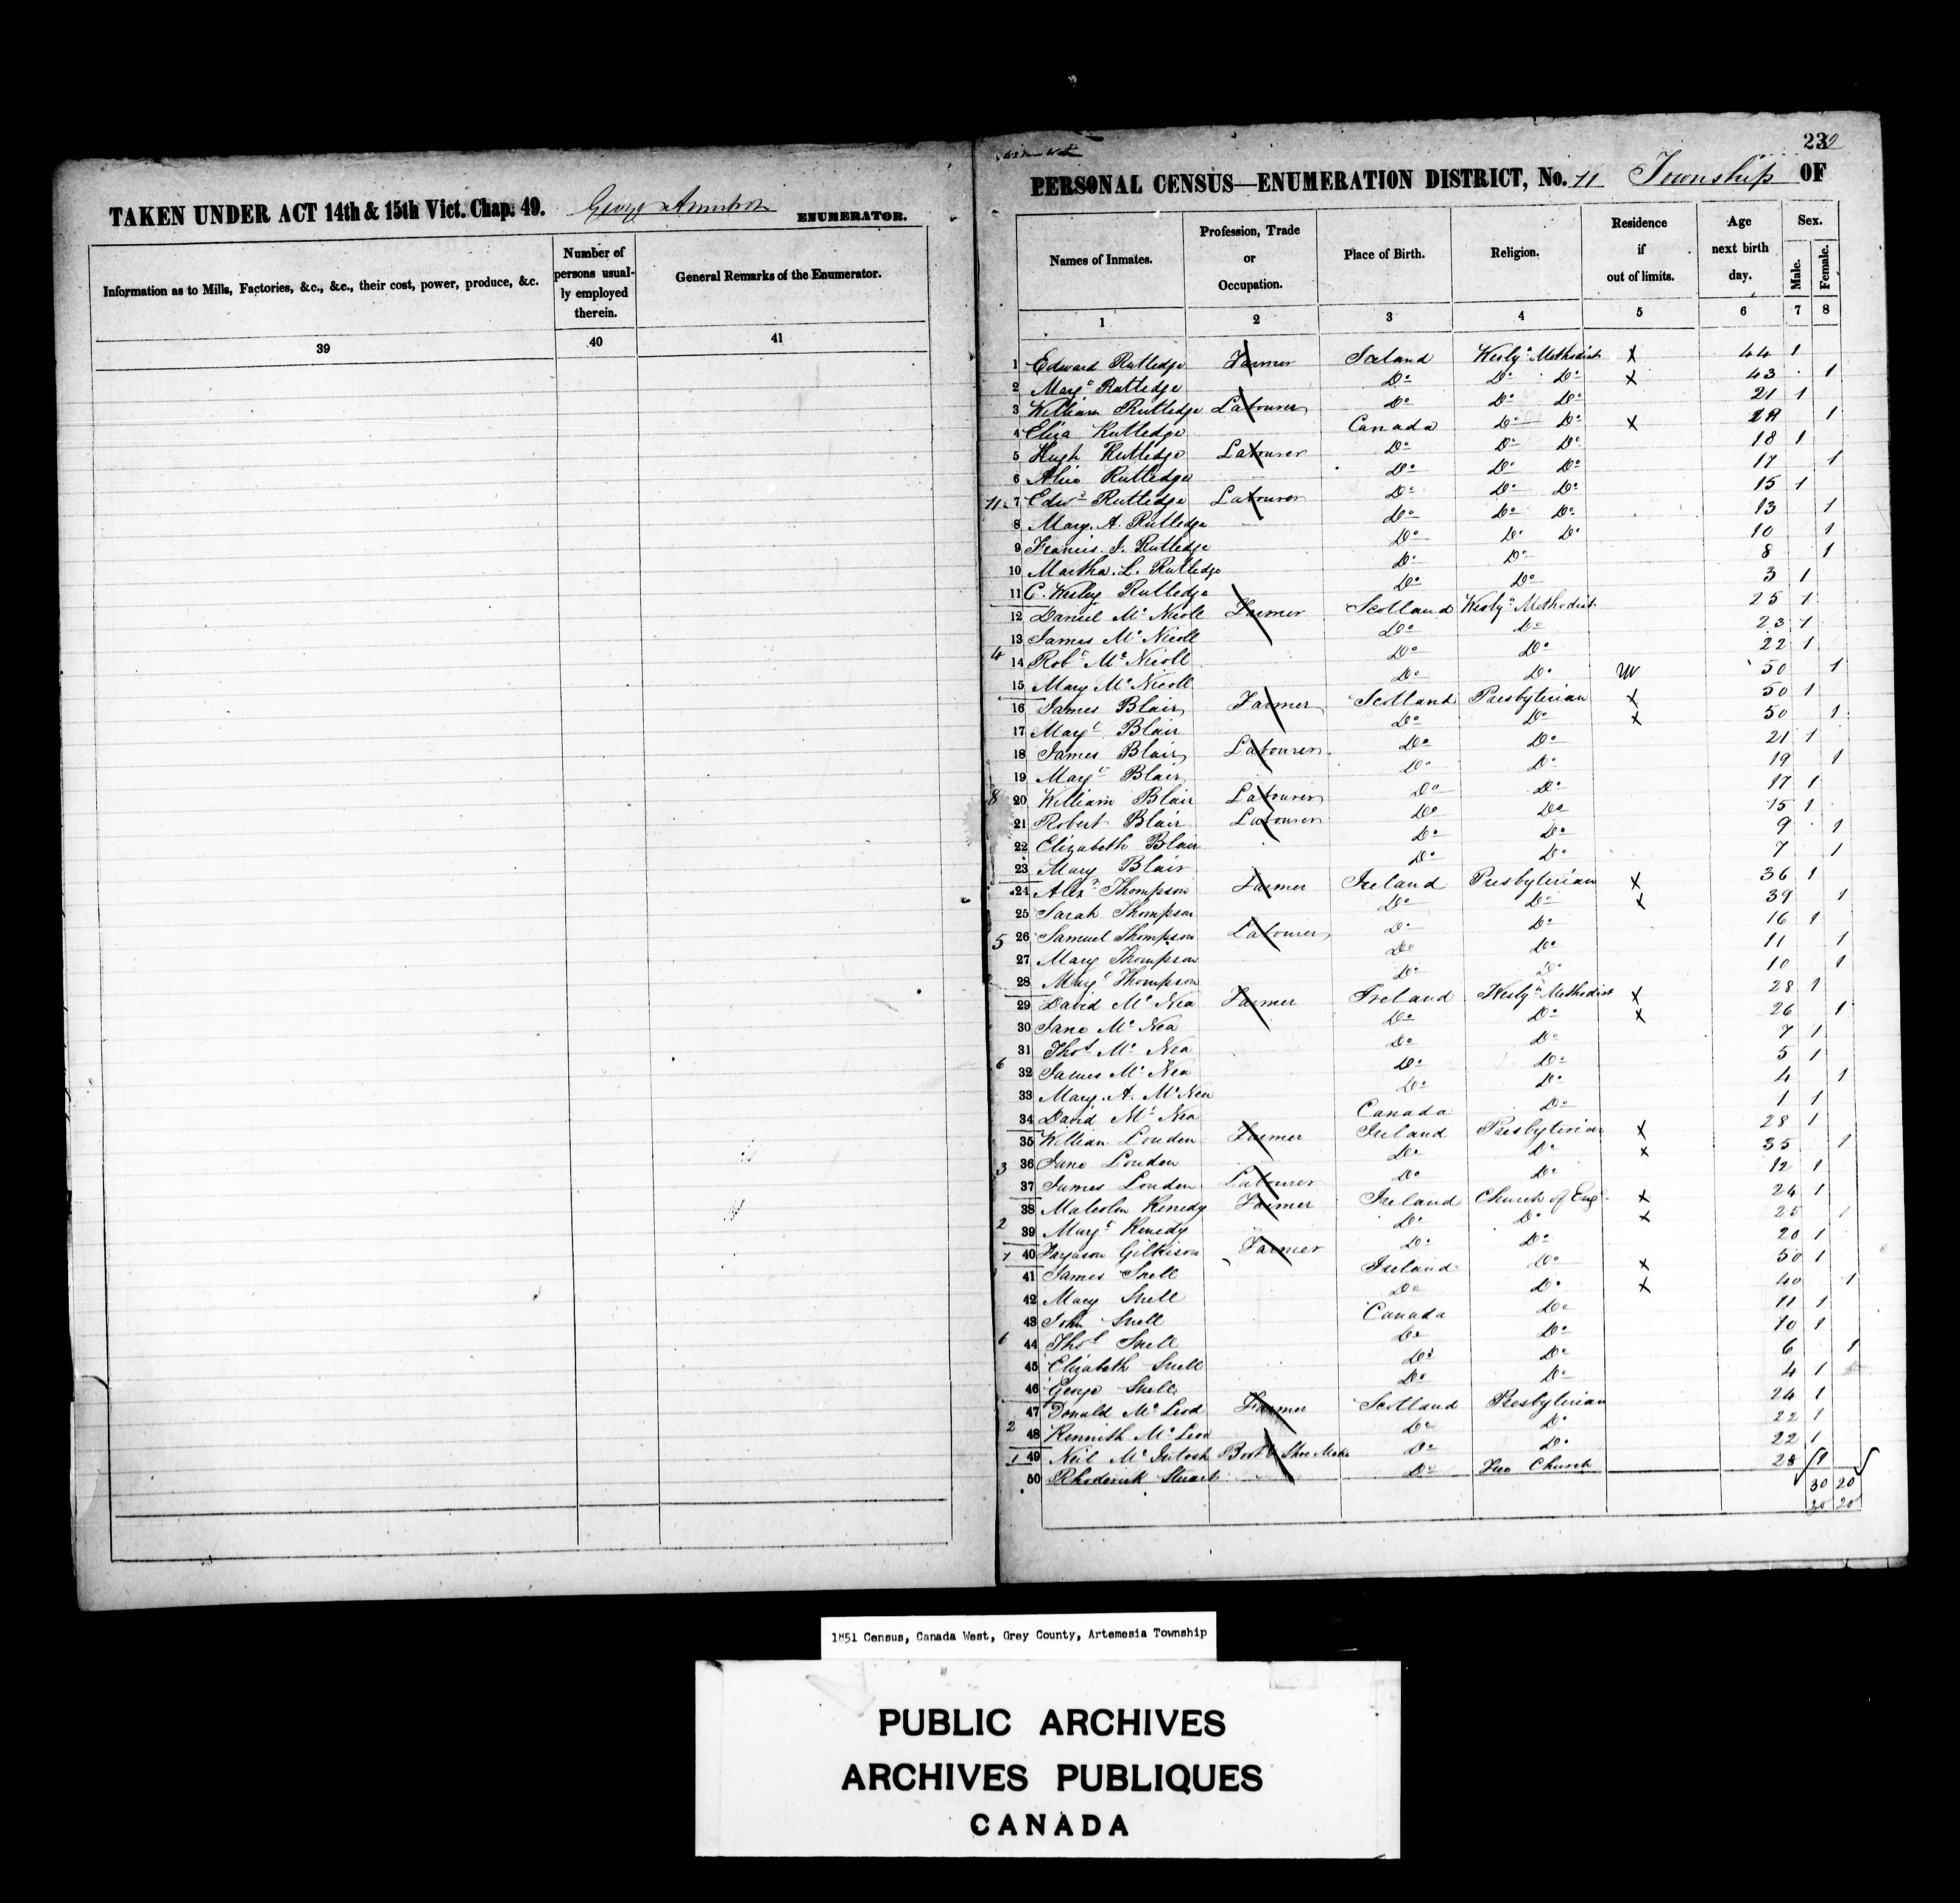 TAKEN UNDER ACT 14th & 15th Vict. Chap. 49. George Armstron ENUMERATOR.
Information as to Mills, Factories, &c., &c., their cost, power, produce, &c.
Number of persons usual-
ly employed
therein.
General Remarks of the Enumerator.
39 40 41
230
PERSONAL CENSUS—ENUMERATION DISTRICT, No. 11 Township OF
Names of Inmates. Profession, Trade or Occupation. Place of Birth. Religion. Residence if out of limits. Age next birth day. Sex. Male. Female.
1 2 3 4 5 6 7 8
1 Edward Rutledge Farmer Ireland Wesly.n Methodist x 44 1
2 Marg.t Rutledge Do Do Do x 43 1
3 William Rutledge Labourer Do Do Do 21 1
4 Eliza Rutledge Canada Do Do x 1
5 Hugh Rutledge Labourer Do Do Do 18 1
6 Alice Rutledge Do Do Do 17 1
11 7 Edw.d Rutledge Labourer Do Do Do 15 1
8 Mary. A. Rutledge Do Do Do 13 1
9 Francis. J. Rutledge Do Do Do 10 1
10 Martha. L. Rutledge Do Do 8 1
11 C. Wesley Rutledge Do Do 3 1
12 Daniel Mc Nicoll Farmer Scotland Wesly.n Methodist 25 1
13 James Mc Nicoll Do Do 23 1
4 14 Rob.t Mc Nicoll Do Do 22 1
15 Mary Mc Nicoll Do Do W 50 1
16 James Blair Farmer Scotland Presbyterian x 50 1
17 Marg.t Blair Do Do x 50 1
18 James Blair Labourer Do Do 21 1
19 Marg.t Blair Do Do 19 1
8 20 William Blair Labourer Do Do 17 1
21 Robert Blair Labourer Do Do 15 1
22 Elizabeth Blair Do Do 9 1
23 Mary Blair Do Do 7 1
24 Alex.r Thompson Farmer Ireland Presbyterian x 36 1
25 Sarah Thompson Do Do x 39 1
5 26 Samuel Thompson Labourer Do Do 16 1
27 Mary Thompson Do Do 11 1
28 Marg.t Thompson Do Do 10 1
29 David Mc Nea Farmer Ireland Wesly.n Methodist x 28 1
30 Jane Mc Nea Do Do x 26 1
31 Thos Mc Nea Do Do 7 1
6 32 James Mc Nea Do Do 5 1
33 Mary. A. McNea Do Do 4 1
34 David Mc Nea Canada Do 1 1
35 William Louden Farmer Ireland Presbyterian x 28 1
3 36 Jane Louden Do Do x 35 1
37 James Louden Labourer Do Do 12 1
38 Malcolm Kenedy Farmer Ireland Church of Eng x 24 1
2 39 Marg.t Kenedy Do Do x 25 1
1 40 Gilkison Farmer Do Do 20 1
41 James Snell Ireland Do x 50 1
42 Mary Snell Do Do x 40 1
43 John Snell Canada Do 11 1
6 44 Thos Snell Do Do 10 1
45 Elizabeth Snell Do Do 6 1
46 George Snell Do Do 4 1
47 Donald Mc Leod Farmer Scotland Presbyterian 24 1
2 48 Kennith Mc Leod Do Do 22 1
1 49 Neil Mc Intosh Boot & Shoe Make Do Do 22 1
50 Rhoderick Stuart Do Free Church 1
30 20
20
1851 Census, Canada West, Grey County, Artemesia Township
PUBLIC ARCHIVES
ARCHIVES PUBLIQUES
CANADA